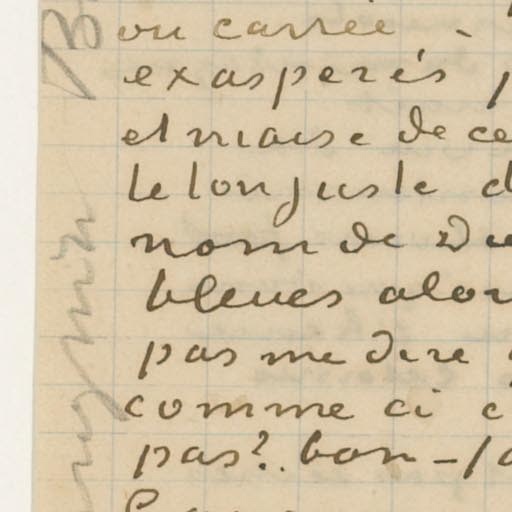 ou carrée -
exasperés
et niaise de ce
le ton juste
nom de Die
bleues alor
pas me dire
comme ci
pas? bon -